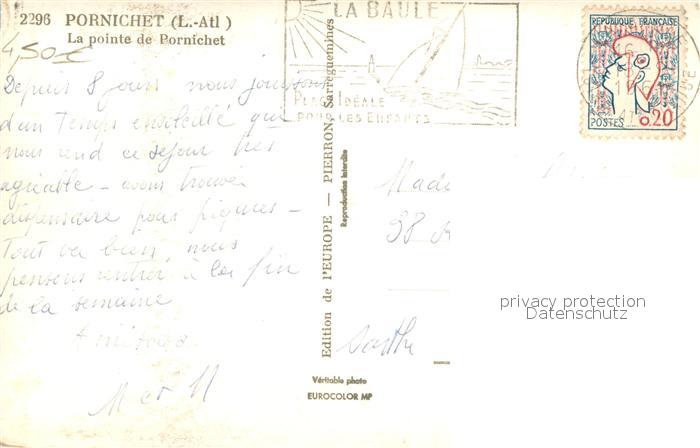 2296 PORNICHET (L.-Atl)
La pointe de Pornichet
4,50 €
Depuis 8 jours nous jouissons
d'un temps ensoleillé qui
nous rend ce séjour très
agréable - avons trouvé
dispensaire pour piqures -
Tout va bien, nous
pensons rentrer à la fin
de la semaine
Amitiés
M et M
LA BAULE
PLAGE IDÉALE
POUR LES ENFANTS
Edition de l'EUROPE — PIERRON - Sarreguemines
Reproduction interdite
Véritable photo
EUROCOLOR MP
REPUBLIQUE FRANÇAISE
POSTES 0.20
Made
38
Sarthe
privacy protection
Datenschutz